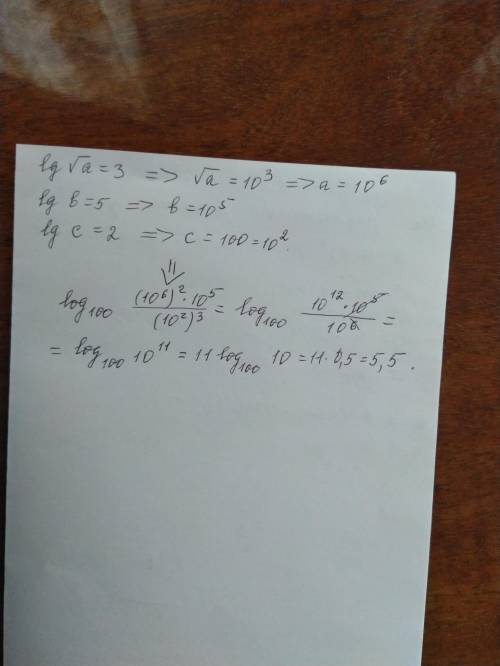 lg √a = 3 => √a = 10³ => a = 10⁶
lg b = 5 => b = 10⁵
lg c = 2 => c = 100 = 10².
log₁₀₀ (10⁶)²·10⁵/(10²)³ = log₁₀₀ 10¹²·10⁵/10⁶ =
= log₁₀₀ 10¹¹ = 11 log₁₀₀ 10 = 11·0,5 = 5,5.